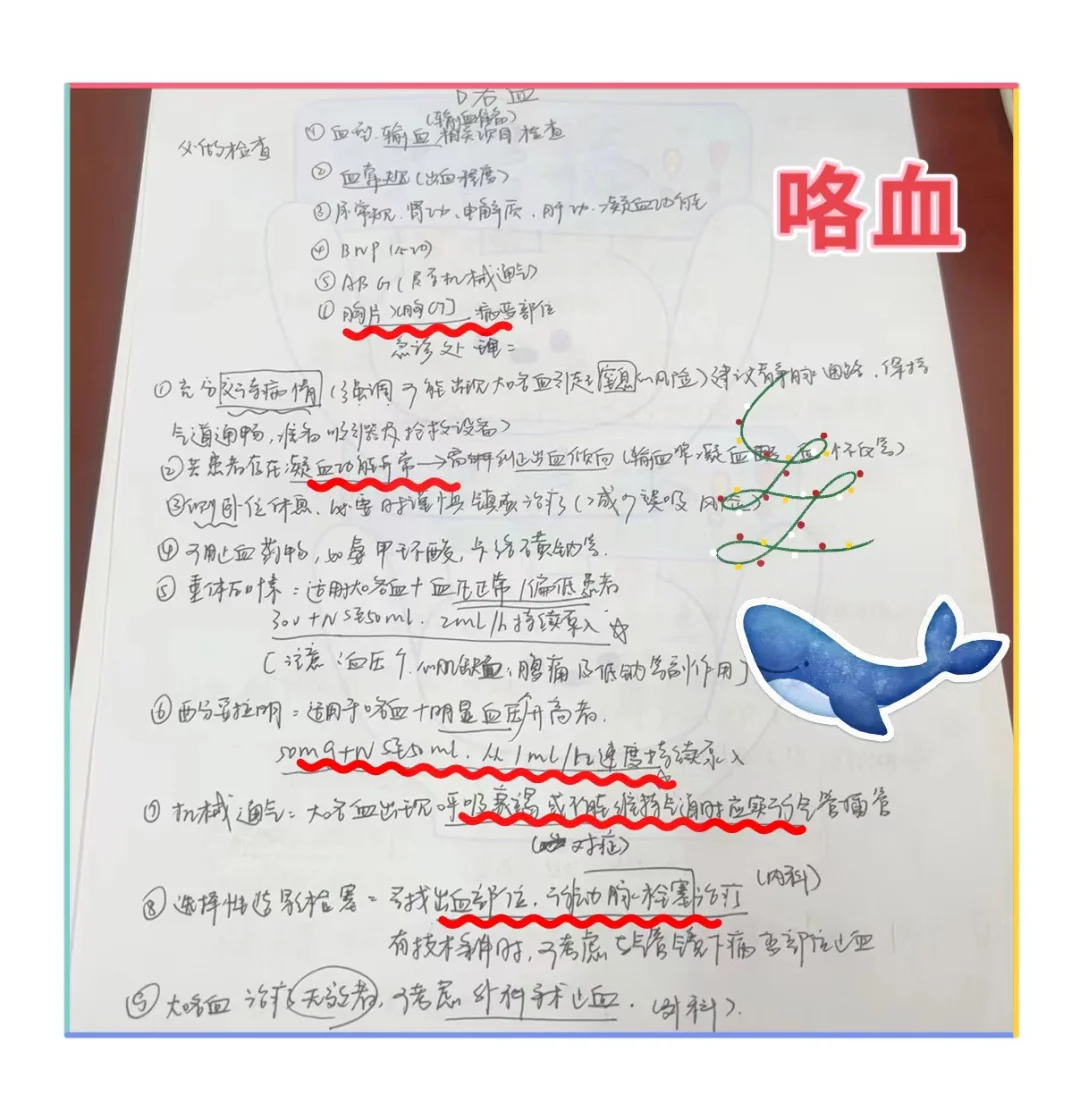 咯血
咯血
(输血准备)
必做检查 ① 血型.输血相关项目检查
② 血常规(出血程度)
③ 尿常规.肾功、电解质、肝功、凝血功能
④ BNP
⑤ ABG(是否机械通气)
⑥ 胸片 胸CT 病变部位
急诊处理:
① 充分交待病情(强调可能出现大咯血引起窒息的风险)建议 静脉通路、保持
气道通畅,准备吸引器及抢救设备)
② 若患者存在凝血功能异常→ 纠正出血倾向(输血浆凝血 )
③ 侧卧位休息、必要时谨慎镇静治疗(减少误吸风险)
④ 可用止血药物,如氨甲环酸,卡络磺钠等.
⑤ 垂体后叶素:适用大咯血+血压正常/偏低患者
30u+NS至50ml. 2ml/h持续泵入☆
(注意:血压↑.心肌缺血;腹痛及低钠等副作用)
⑥ 酚妥拉明:适用于咯血+明显血压升高者.
50mg+NS至50ml.从1ml/h速度持续泵入
⑦ 机械通气:大咯血出现呼吸衰竭或不能维持气道时应实行气管插管
(对症)
⑧ 选择性造影栓塞:寻找出血部位,行动脉栓塞治疗 (内科)
有技术条件时,可考虑支气管镜下病变部位止血
⑨ 大咯血治疗无效者,可考虑外科手术止血.(外科).